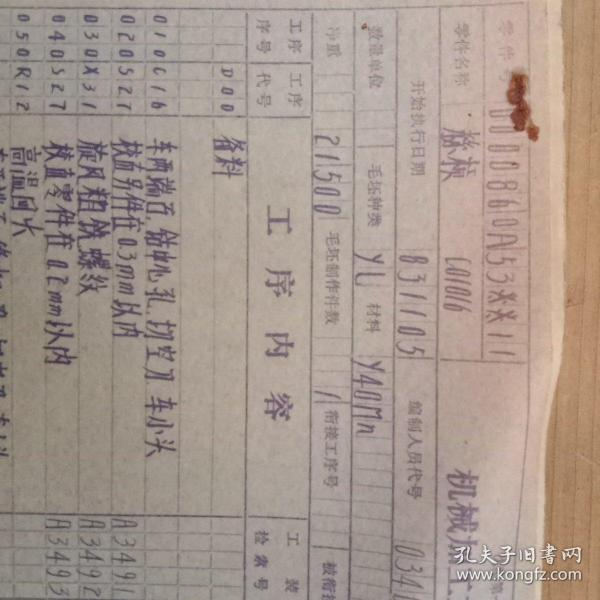 机械加工
零件号 000860A53**11
零件名称 丝杠 C0106
开始执行日期 831105 编制人员代号 034
数量单位 毛坯种类 YL 材料 Y40Mn
净重 21500 毛坯制作件数 1 衔接工序号 被衔接
工序序号 工序代号 工序内容 工装检索号
D00 备料
010C16 车两端面,钻中心孔,切空刀,车小头
020S27 校直另件在0.3mm以内 A3491
030X31 旋风粗铣螺纹 A3492
040S27 校直零件在0.2mm以内 A3493
050R12 高温回火
孔夫子旧书网
www.kongfz.com